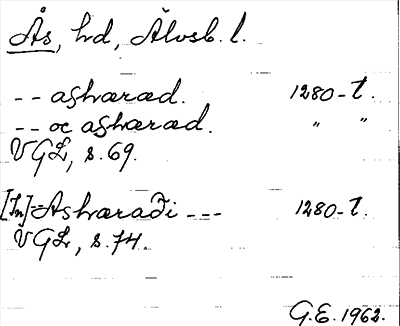 Ås, hd, Älvsb. l.
-- ashæræd. 1280-t.
-- oc ashæræd. " "
VGL, s. 69.
[In]-Ashæraði --- 1280-t.
VGL, s. 74.
G.E. 1962.